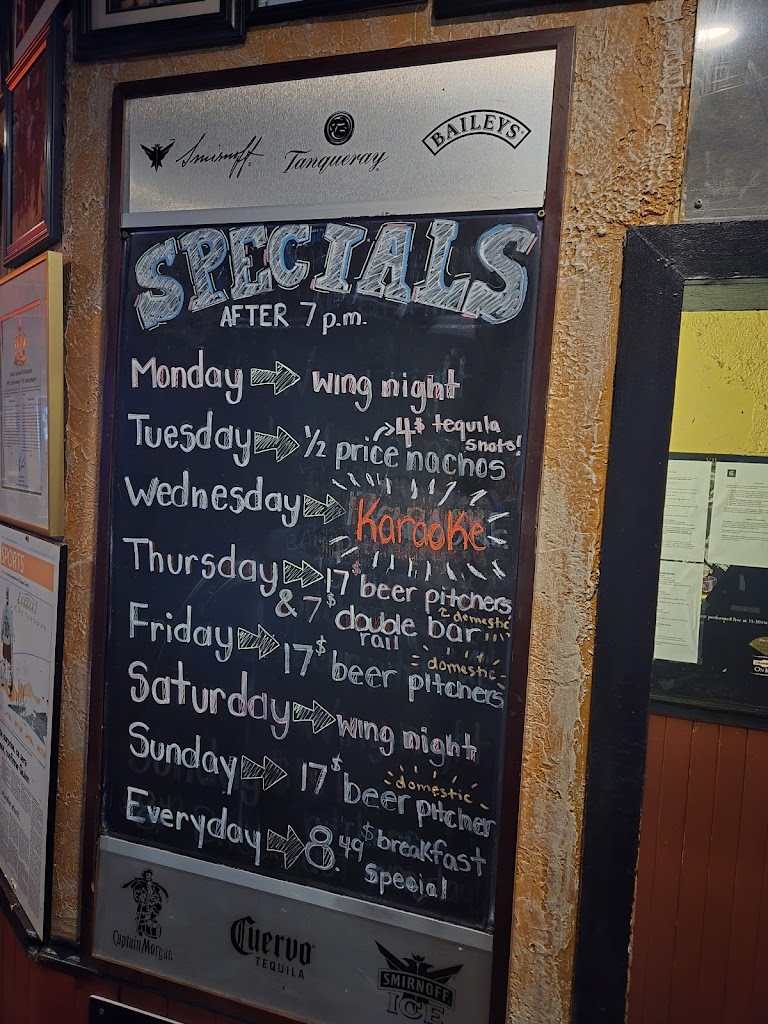 Smirnoff
Tanqueray
BAILEYS
SPECIALS
AFTER 7 p.m.
Monday wing night
4$ tequila
shots!
Tuesday 1/2 price nachos
Wednesday Karaoke
Thursday 17$ beer pitchers
domestic
& 7$ double bar
rail
Friday 17$ beer pitchers
domestic
Saturday wing night
Sunday 17$ beer pitcher
domestic
Everyday 8.49$ breakfast
special
Captain Morgan
Cuervo
TEQUILA
SMIRNOFF
ICE
SPORTS